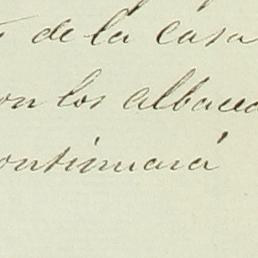 de la casa
on los albacea
ontinuará